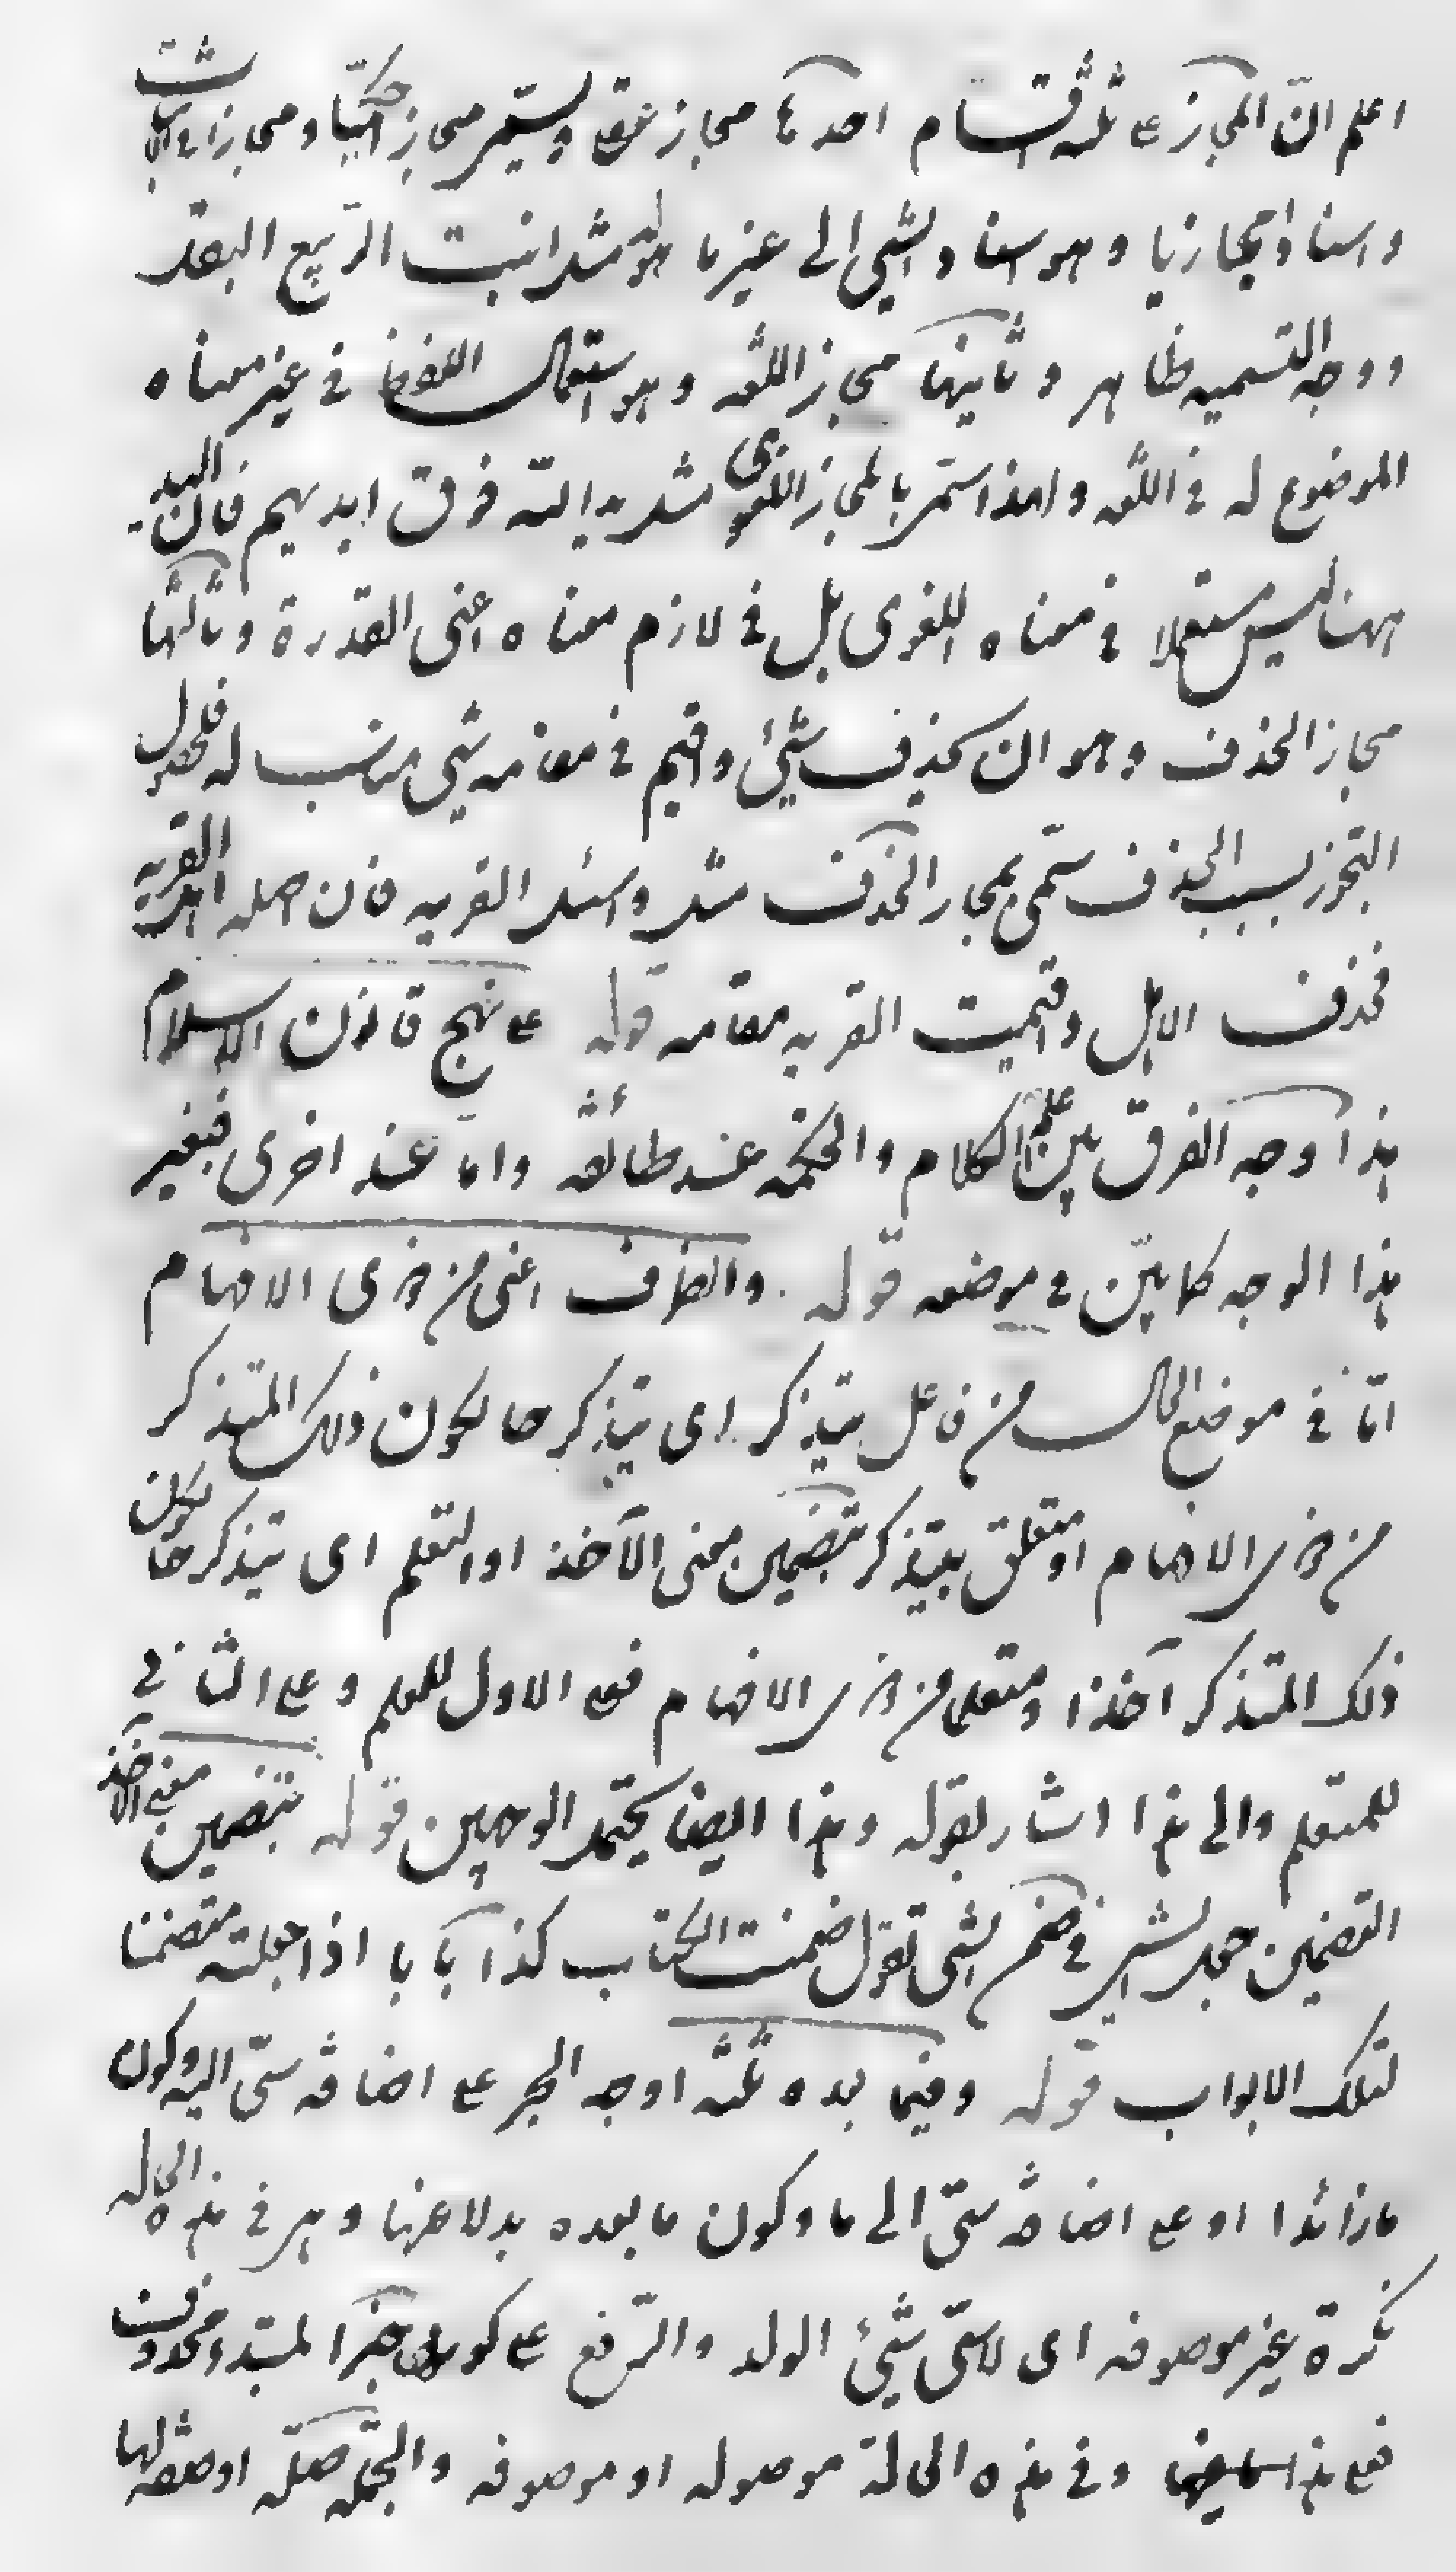 اعلم ان المجاز على ثلثة اقسام احدها مجاز عقلى ويسمى مجازا حكميا ومجازا فى الاثبات
واسنادا مجازيا وهو اسناد الشئ الى غير ما هو له مثل انبت الربيع البقل
ووجه التسميه ظاهر وثانيها مجاز اللغه وهو استعمال اللفظ فى غير معناه
الموضوع له فى اللغه ولهذا سمى بالمجاز اللغوى مثل يد الله فوق ايديهم فان اليد
ههنا ليس مستعملا فى معناه اللغوى بل فى لازم معناه اعنى القدرة وثالثها
مجاز الحذف وهو ان يحذف شئ واقيم فى مقامه شئ مناسب له فلحصول
التجوز بسبب الحذف سمى بمجاز الحذف مثل واسئل القريه فان اصله اهل القريه
فحذف الاهل واقيمت القريه مقامه قوله على نهج قانون الاسلام
هذا وجه الفرق بين علم الكلام والحكمه عند طائفه واما عند اخرى فبغير
هذا الوجه كما بين فى موضعه قوله والظرف اعنى من ذوى الافهام
اما فى موضع الحال من فاعل يتذكر اى يتذكر حا لكون ذلك المتذكر
من ذوى الافهام او متعلق بيتذكر بتضمين معنى الآخذ او التعلم اى يتذكر حا لكون
ذلك المتذكر آخذا ومتعلما من ذوى الافهام فعلى الاول للمعلم وعلى الثانى
للمتعلم والى هذا اشار بقوله وهذا ايضا يحتمل الوجهين قوله بتضمين معنى الآخذ
التضمين جعل الشئ فى ضمن الشئ تقول ضمنت الكتاب كذا بابا اذا جعلته متضمنا
لتلك الابواب قوله وفيما بعده ثلثه اوجه الجر على اضافه سى اليه وكون
ما زائدا او على اضافه سى الى ما وكون ما بعده بدلا عنها وهى فى هذه الحاله
نكرة غير موصوفه اى لا سى شئ الولد والرفع على كونه خبرا لمبتداء محذوف
فعلى هذا وفى هذه الحالة موصوله او موصوفه والجمله صله او صفه لها